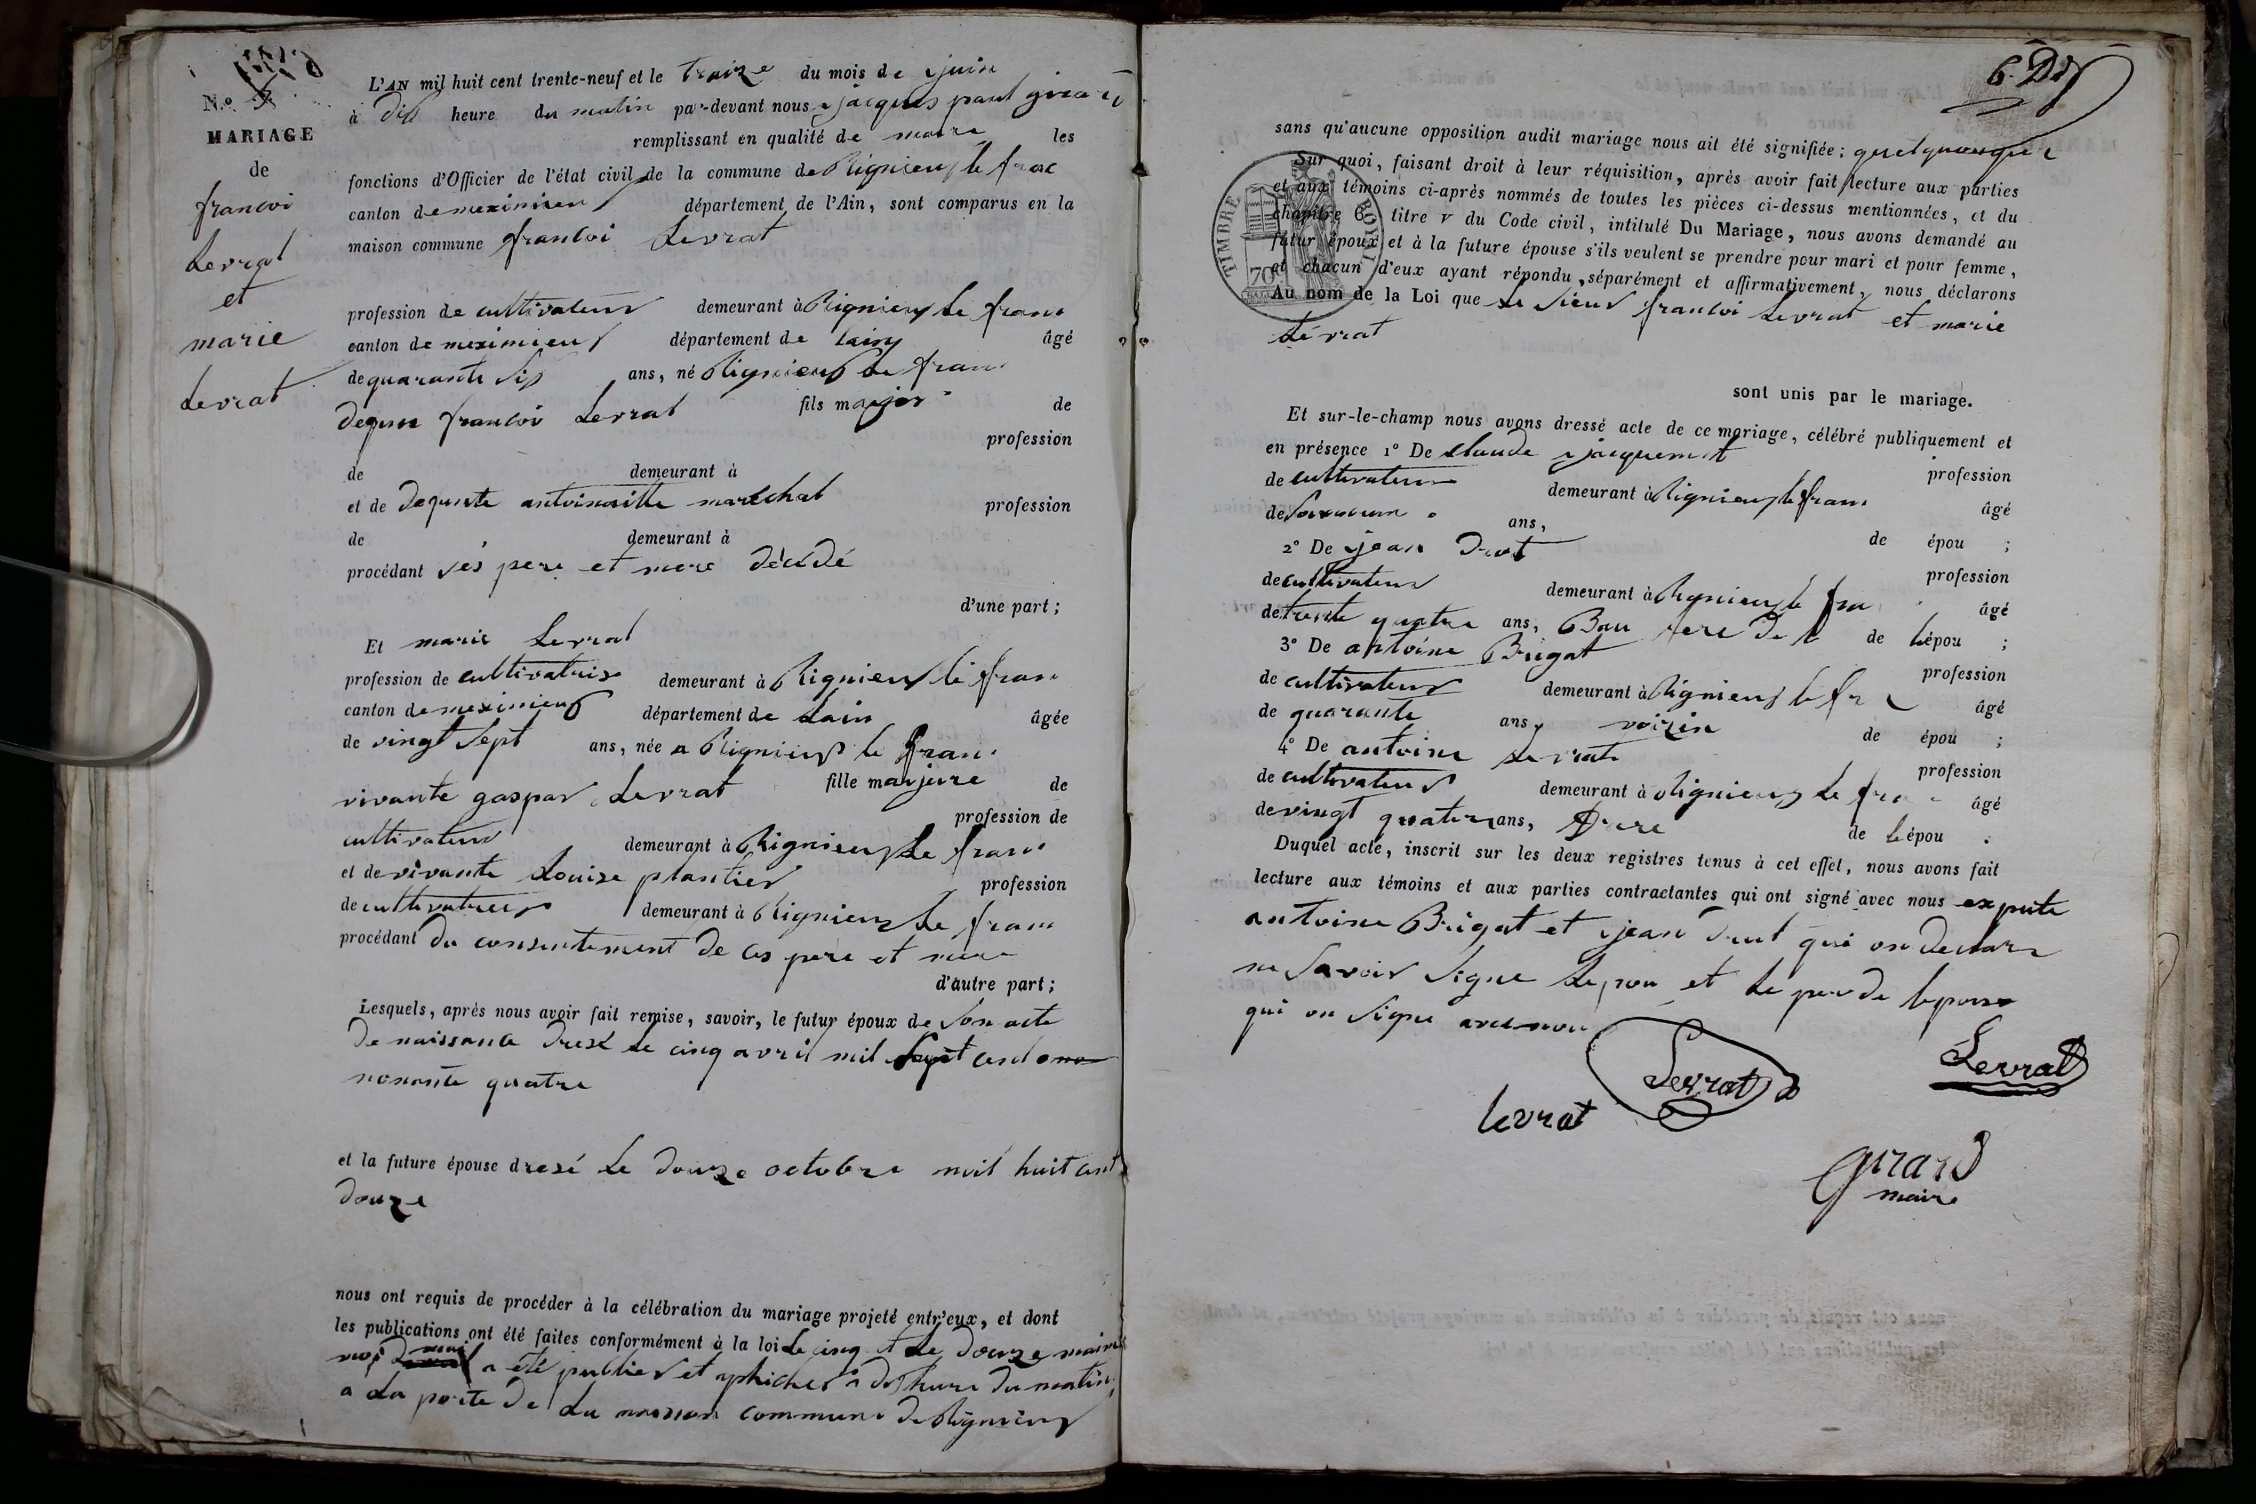 N.o 3
MARIAGE
de
francoi
Levrat
et
marie
Levrat
L'AN mil huit cent trente-neuf et le treize du mois de juin
à dix heure du matin par-devant nous jacques paul girard
remplissant en qualité de maire les
fonctions d'Officier de l'état civil de la commune de Rignieux le franc
canton de meximieux département de l'Ain, sont comparus en la
maison commune francoi Levrat
profession de cultivateur demeurant à Rignieux le franc
canton de meximieux département de lain âgé
de quarante six ans, né Rignieux le franc
fils majer de
defun francoi Levrat
profession
de demeurant à
et de defunte antoinaitte marechal profession
de demeurant à
procédant ses pere et mere décédé
d'une part ;
Et marie Levrat
profession de cultivatrise demeurant à Rignieux le franc
canton de meximieux département de Lain âgée
de vingt sept ans, née a Rignieux le franc
fille marjeure de
vivante gaspar Levrat
profession de
cultivateur demeurant à Rignieux le franc
et de vivante Louise plantier profession
de cultivatreur demeurant à Rignieux le franc
procédant du consentement de ces père et mere
d'autre part ;
Lesquels, après nous avoir fait remise, savoir, le futur époux de son acte
de naissance dresé le cinq avril mil sept cent
nonante quatre
et la future épouse dresé Le douze octobre mil huit cent
douze
nous ont requis de procéder à la célébration du mariage projeté entr'eux, et dont
les publications ont été faites conformément à la loi le cinq et le douze
mai a été publier et aphicher a dix heure du matin
a La porte de La maison commune de Rignieux
6. Dej
sans qu'aucune opposition audit mariage nous ait été signifiée ; quelquonque
Sur quoi, faisant droit à leur réquisition, après avoir fait lecture aux parties
et aux témoins ci-après nommés de toutes les pièces ci-dessus mentionnées, et du
chapitre 6, titre v du Code civil, intitulé Du Mariage, nous avons demandé au
futur époux et à la future épouse s'ils veulent se prendre pour mari et pour femme,
et chacun d'eux ayant répondu, séparément et affirmativement, nous déclarons
Au nom de la Loi que le sieur francoi Levrat et marie
Levrat
TIMBRE ROYAL
70c
sont unis par le mariage.
Et sur-le-champ nous avons dressé acte de ce mariage, célébré publiquement et
en présence 1° De claude jacquemet
profession
de cultivateur demeurant à Rignieux le franc
âgé
de ans, de épou ;
2° De jean Drut
profession
de cultivateur demeurant à Rignieux le fran
âgé
de trente quatre ans, Bau frere de l de lépou ;
3° De antoine Brigat
profession
de cultivateur demeurant à Rignieux le fr
âgé
de quarante ans, voizin de épou ;
4° De antoine Levrat
profession
de cultivateur demeurant à Rignieux le fra
âgé
de vingt quatre ans, frere de lépou .
Duquel acte, inscrit sur les deux registres tenus à cet effet, nous avons fait
lecture aux témoins et aux parties contractantes qui ont signé avec nous expte
antoine Brigat et jean Drut qui on declare
ne savoir signe Lepou et Le per de lepouse
qui on signe avec nou
Levrat
Levrat
levrat
girard
maire